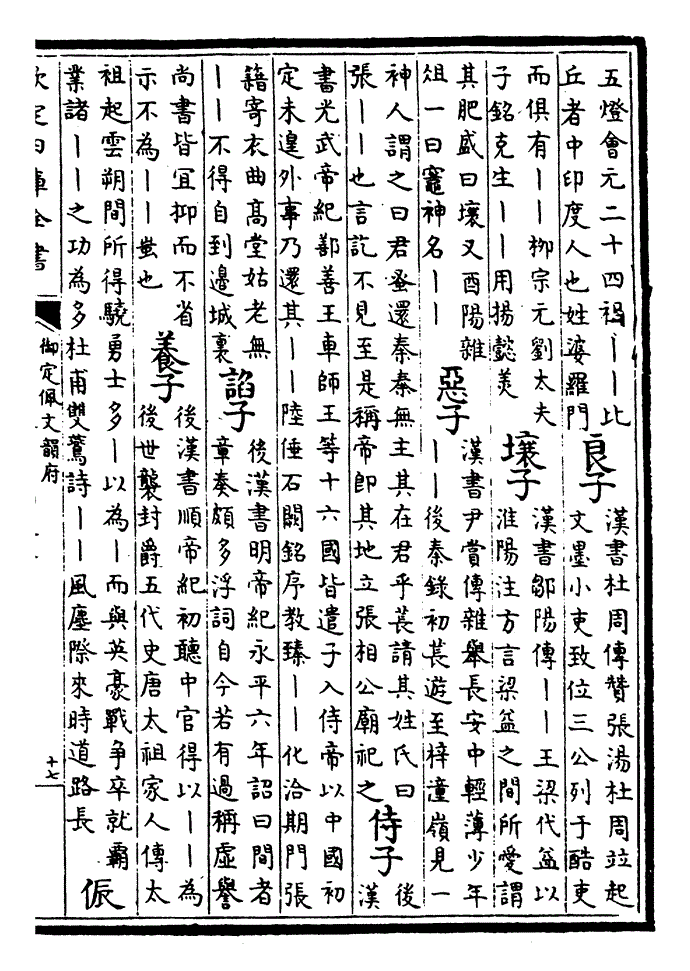 五燈會元二十四祖丨丨比
丘者中印度人也姓婆羅門
良子
漢書杜周傳贊張湯杜周竝起
文墨小吏致位三公列于酷吏
而俱有丨丨柳宗元劉太夫
子銘克生丨丨用揚懿美
壤子
漢書鄒陽傳丨丨王梁代益以
淮陽注方言梁益之間所愛謂
其肥盛曰壤又酉陽雜
俎一曰竈神名丨丨
惡子
漢書尹賞傳雜舉長安中輕薄少年
丨丨後秦錄初萇遊至梓潼嶺見一
神人謂之曰君蚤還秦秦無主其在君乎萇請其姓氏曰
張丨丨也言訖不見至是稱帝即其地立張相公廟祀之
侍子
後
漢
書光武帝紀鄯善王車師王等十六國皆遣子入侍帝以中國初
定未遑外事乃還其丨丨陸倕石闕銘序教臻丨丨化洽期門張
籍寄衣曲髙堂姑老無
丨丨不得自到邊城裏
諂子
後漢書明帝紀永平六年詔曰間者
章奏頗多浮詞自今若有過稱虛譽
尚書皆宜抑而不省
示不為丨丨蚩也
養子
後漢書順帝紀初聽中官得以丨丨為
後世襲封爵五代史唐太祖家人傳太
祖起雲朔間所得驍勇士多丨以為丨而與英豪戰争卒就霸
業諸丨丨之功為多杜甫雙鶩詩丨丨風塵際來時道路長
侲
欽定四庫全書
御定佩文韻府
十七